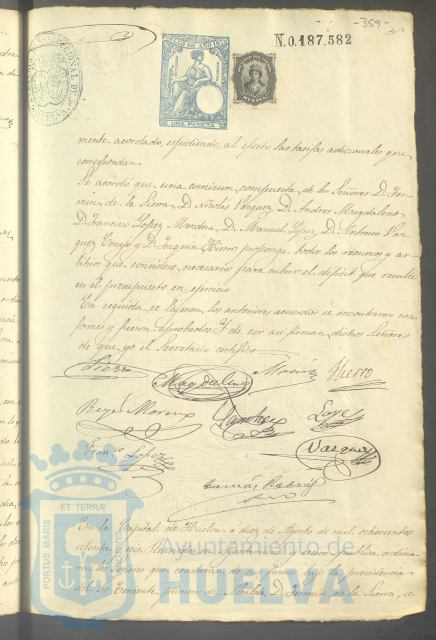 -359-
N.0.187.582
SELLO DE AÑO 187
UNA PESETA
mente acordado, espidiendo, al efecto las tarifas adicionales que
correspondan.
Se acordó que una comision compuesta de los Señores D. Fer-
min de la Sierra, D. Nicolás Vazquez, D. Andres Magdalena
D. Francisco Lopez Mendez, D. Manuel Lopez, D. Antonio Vaz-
quez Conejo y D. Joaquin Hierro proponga todos los recursos y ar-
bitrios que considere necesarios para cubrir el deficit que resulte
en el presupuesto en ejercicio
En seguida se leyeron los anteriores acuerdos se encontraron con-
formes y fueron aprobados. Y de ser asi firman dichos Señores
de que yo el Secretario certifico
Sierra Magdalena Hierro
Reyes Moreno Sanchez Lopez
Franco Lopez Vazquez
En la Capital de Huelva a diez de Agosto de mil ochocientos
setenta
los Señores que bajo la presidencia
del Sr. Teniente primero de Alcalde D. Fermin de la Sierra, se
PORTUS MARIS
ET TERRÆ
Ayuntamiento de
HUELVA